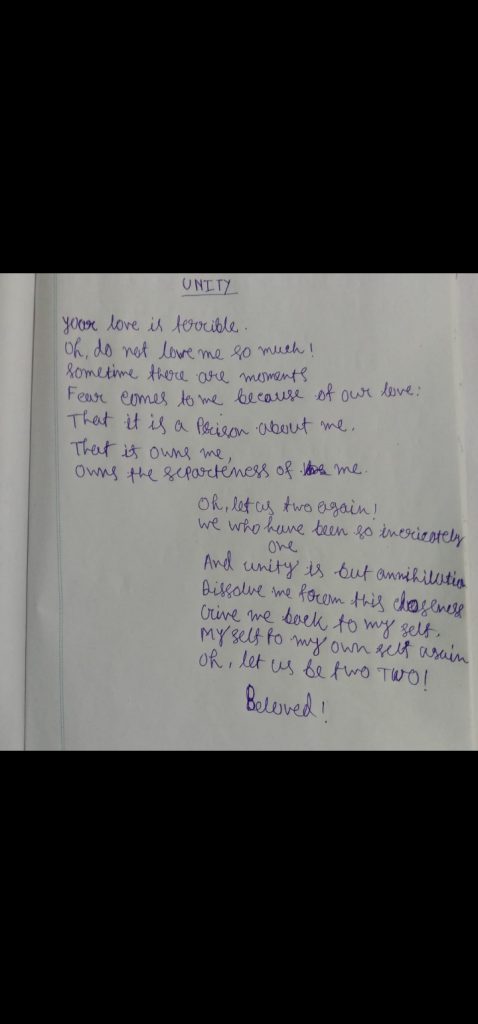 UNITY
your love is terrible.
Oh, do not love me so much!
Sometime there are moments
Fear comes to me because of our love:
That it is a Prison about me.
That it owns me,
Owns the separteness of me.
Oh, let us two again!
We who have been so inericately
one
And unity is but annihilation
Dissolve me from this closeness
Give me back to my self.
Myself to my own self again
Oh, let us be two TWO!
Beloved!